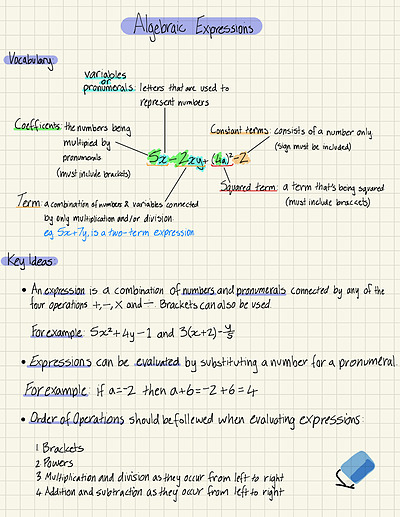 Algebraic Expressions
Vocabulary
variables
or
pronumerals: letters that are used to
represent numbers
Coefficents: the numbers being
multipied by
pronumerals
(must include brackets)
Constant terms: consists of a number only
(sign must be included)
5x-2xy+(4a)²-2
Squared term: a term that's being squared
(must include brackets)
Term: a combination of numbers & variables connected
by only multiplication and/or division
eg. 5x+7y, is a two-term expression
Key Ideas
• An expression is a combination of numbers and pronumerals connected by any of the
four operations +, -, × and ÷. Brackets can also be used.
For example: 5x²+4y-1 and 3(x+2)-y/5
• Expressions can be evaluated by substituting a number for a pronumeral.
For example: if a=-2 then a+6=-2+6=4
• Order of Operations should be followed when evaluating expressions:
1 Brackets
2 Powers
3 Multiplication and division as they occur from left to right
4 Addition and subtraction as they occur from left to right